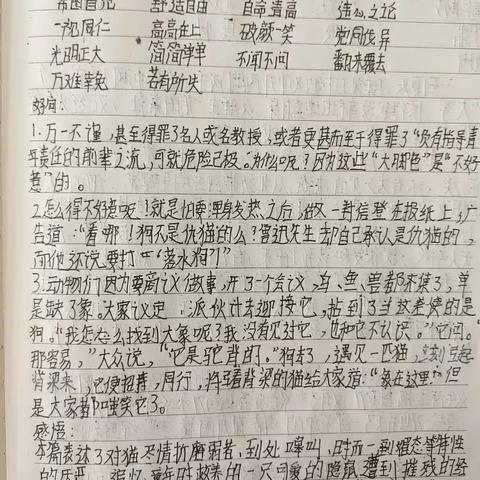 一视同仁 高高在上 破颜一笑 党同伐异
光明正大 简简单单 不闻不问 翻来覆去
万难幸免 若有所失
好句:
1.万一不谨,甚至得罪了名人或名教授,或者更甚而至于得罪了“负有指导青
年责任的前辈”之流,可就危险已极。为什么呢?因为这些“大脚色”是“不好
惹”的。
2.怎么得不好惹呢!就是怕要浑身发热之后,做一封信登在报纸上,广
告道:“看哪!狗不是仇猫的么?鲁迅先生却自己承认是仇猫的,
而他还说要打“落水狗”!”
3.动物们因为要商议做事,开了一个会议,鸟、鱼、兽都齐集了,单
是缺了象。大家议定,派伙计去迎接它,拈到了当这差使的是
狗。“我怎么找到大象呢?我没有见过它,也和它不认识。”它问。
那容易,”大众说,“它是驼背的。”狗去了,遇见一匹猫,立刻弓起
背梁来,他便招待,同行,将弓着背梁的猫给大家道:“象在这里!”但
是大家都嗤笑它了。
感悟:
本篇表达了对猫尽情折磨弱者、到处嗥叫、时而一副媚态等特性